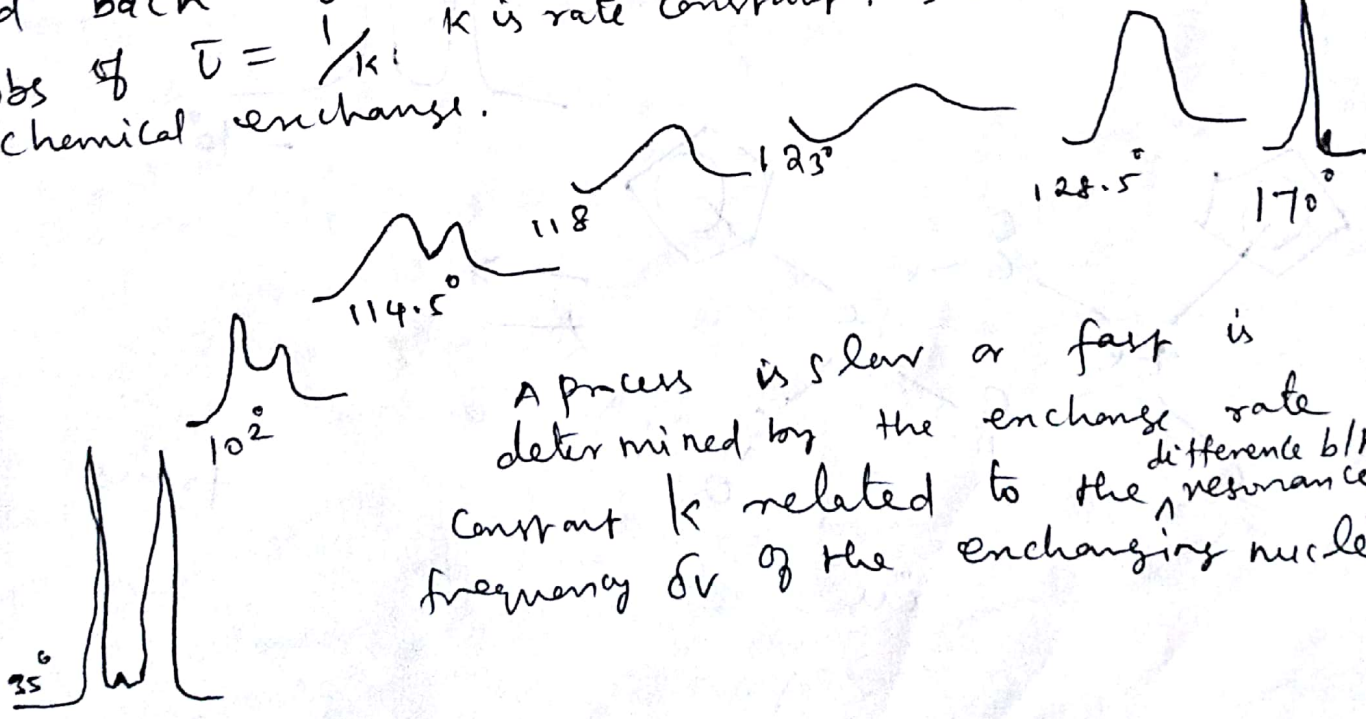 d back
k is rate constant,
obs of τ = 1/k.
chemical exchange.
118
123°
128.5°
170°
114.5°
102°
35°
A process is slow or fast is
determined by the exchange rate
constant k related to the difference b/n resonance
frequency δν of the exchanging nucle